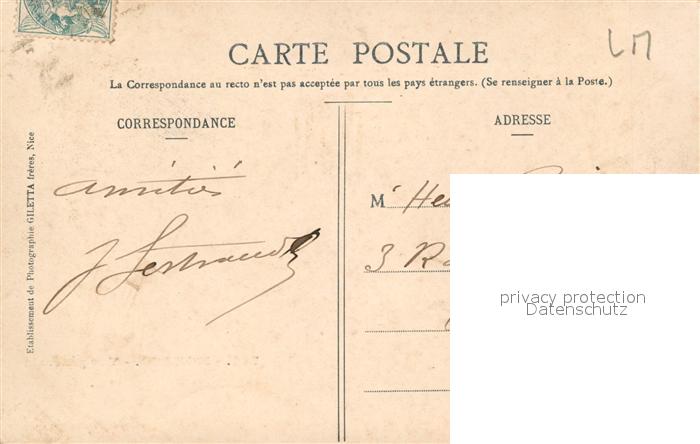 CARTE POSTALE
LM
La Correspondance au recto n'est pas acceptée par tous les pays étrangers. (Se renseigner à la Poste.)
CORRESPONDANCE
ADRESSE
Etablissement de Photographie GILETTA frères, Nice
amitiés
J
M
3
privacy protection
Datenschutz